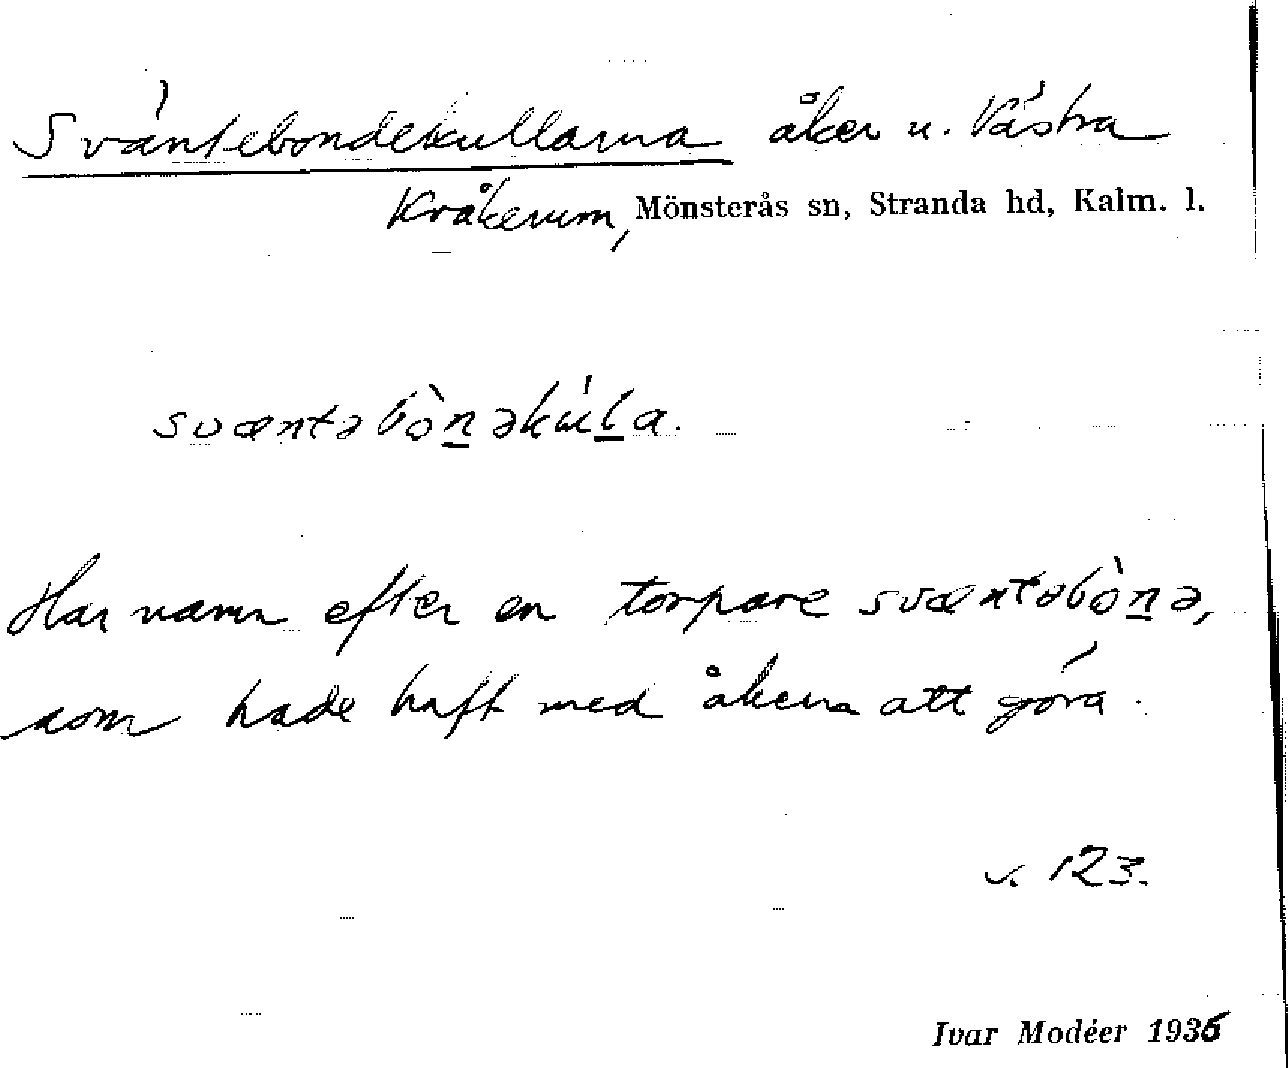 Sväntebondekullarna åker u. Västra
Kråkerum, Mönsterås sn, Stranda hd, Kalm. l.
svæntəbònəkúla.
Har namn efter en torpare svæntəbònə,
som hade haft med åkern att göra.
s. 123.
Ivar Modéer 1936